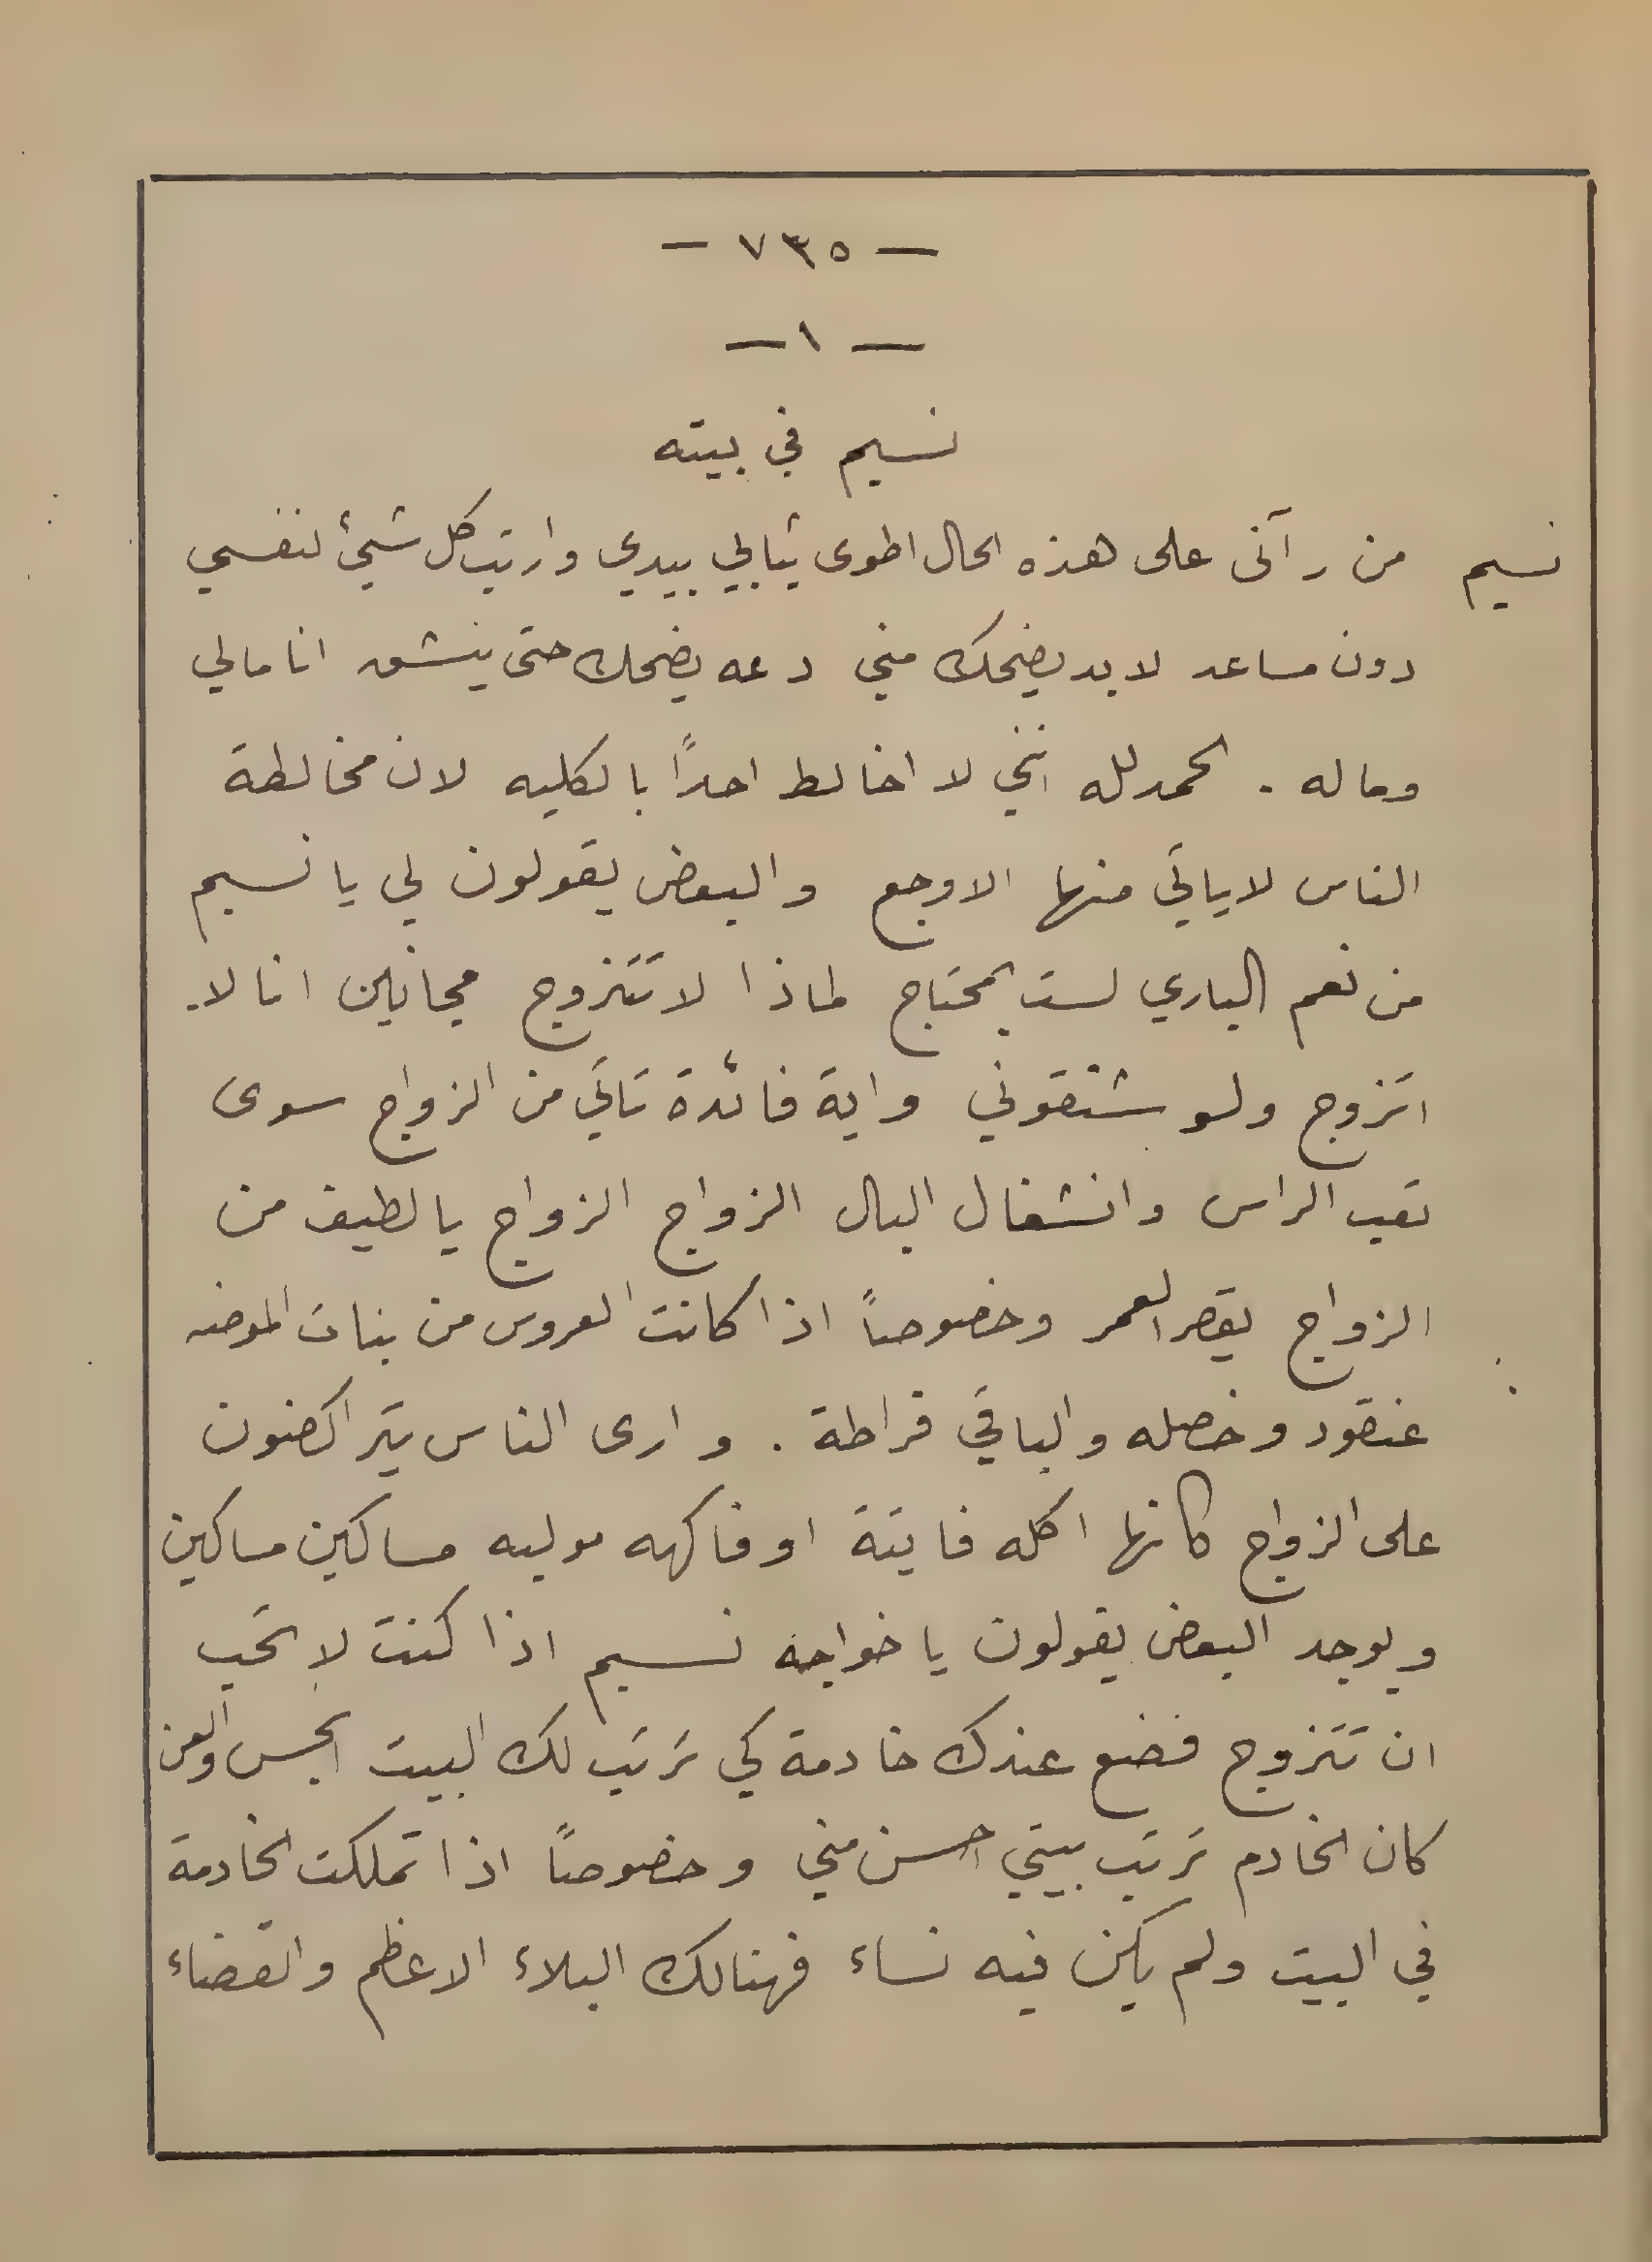 — ٧٣٥ —
— ١ —
نسيم في بيته
نسيم من رآنى على هذه الحال اطوى ثيابي بيدي وارتب كل شيئ لنفسي
دون مساعد لا بد يضحك مني دعه يضحك حتى ينشق انا مالي
وماله . الحمد لله انني لا اخالط احداً بالكليه لان مخالطة
الناس لا ياتي منها الا وجع والبعض يقولون لي يا نسيم
من نعم الباري لست بمحتاج لماذا لا تتزوج مجانين انا لا
اتزوج ولو شنقوني واية فائدة تاتي من الزواج سوى
تعب الراس وانشغال البال الزواج الزواج يا لطيف من
الزواج يقصر العمر وخصوصاً اذا كانت العروس من بنات الموضه
عنقود وخصله والباقي قراطة . وارى الناس يتراكضون
على الزواج كانها اكله فايتة او فاكهه موليه مساكين مساكين
ويوجد البعض يقولون يا خواجه نسيم اذا كنت لا تحب
ان تتزوج فضع عندك خادمة كي ترتب لك البيت انجس والعن
كان الخادم ترتب بيتي احسن مني وخصوصاً اذا تملكت الخادمة
في البيت ولم يكن فيه نساء فهنالك البلاء الاعظم والقضاء